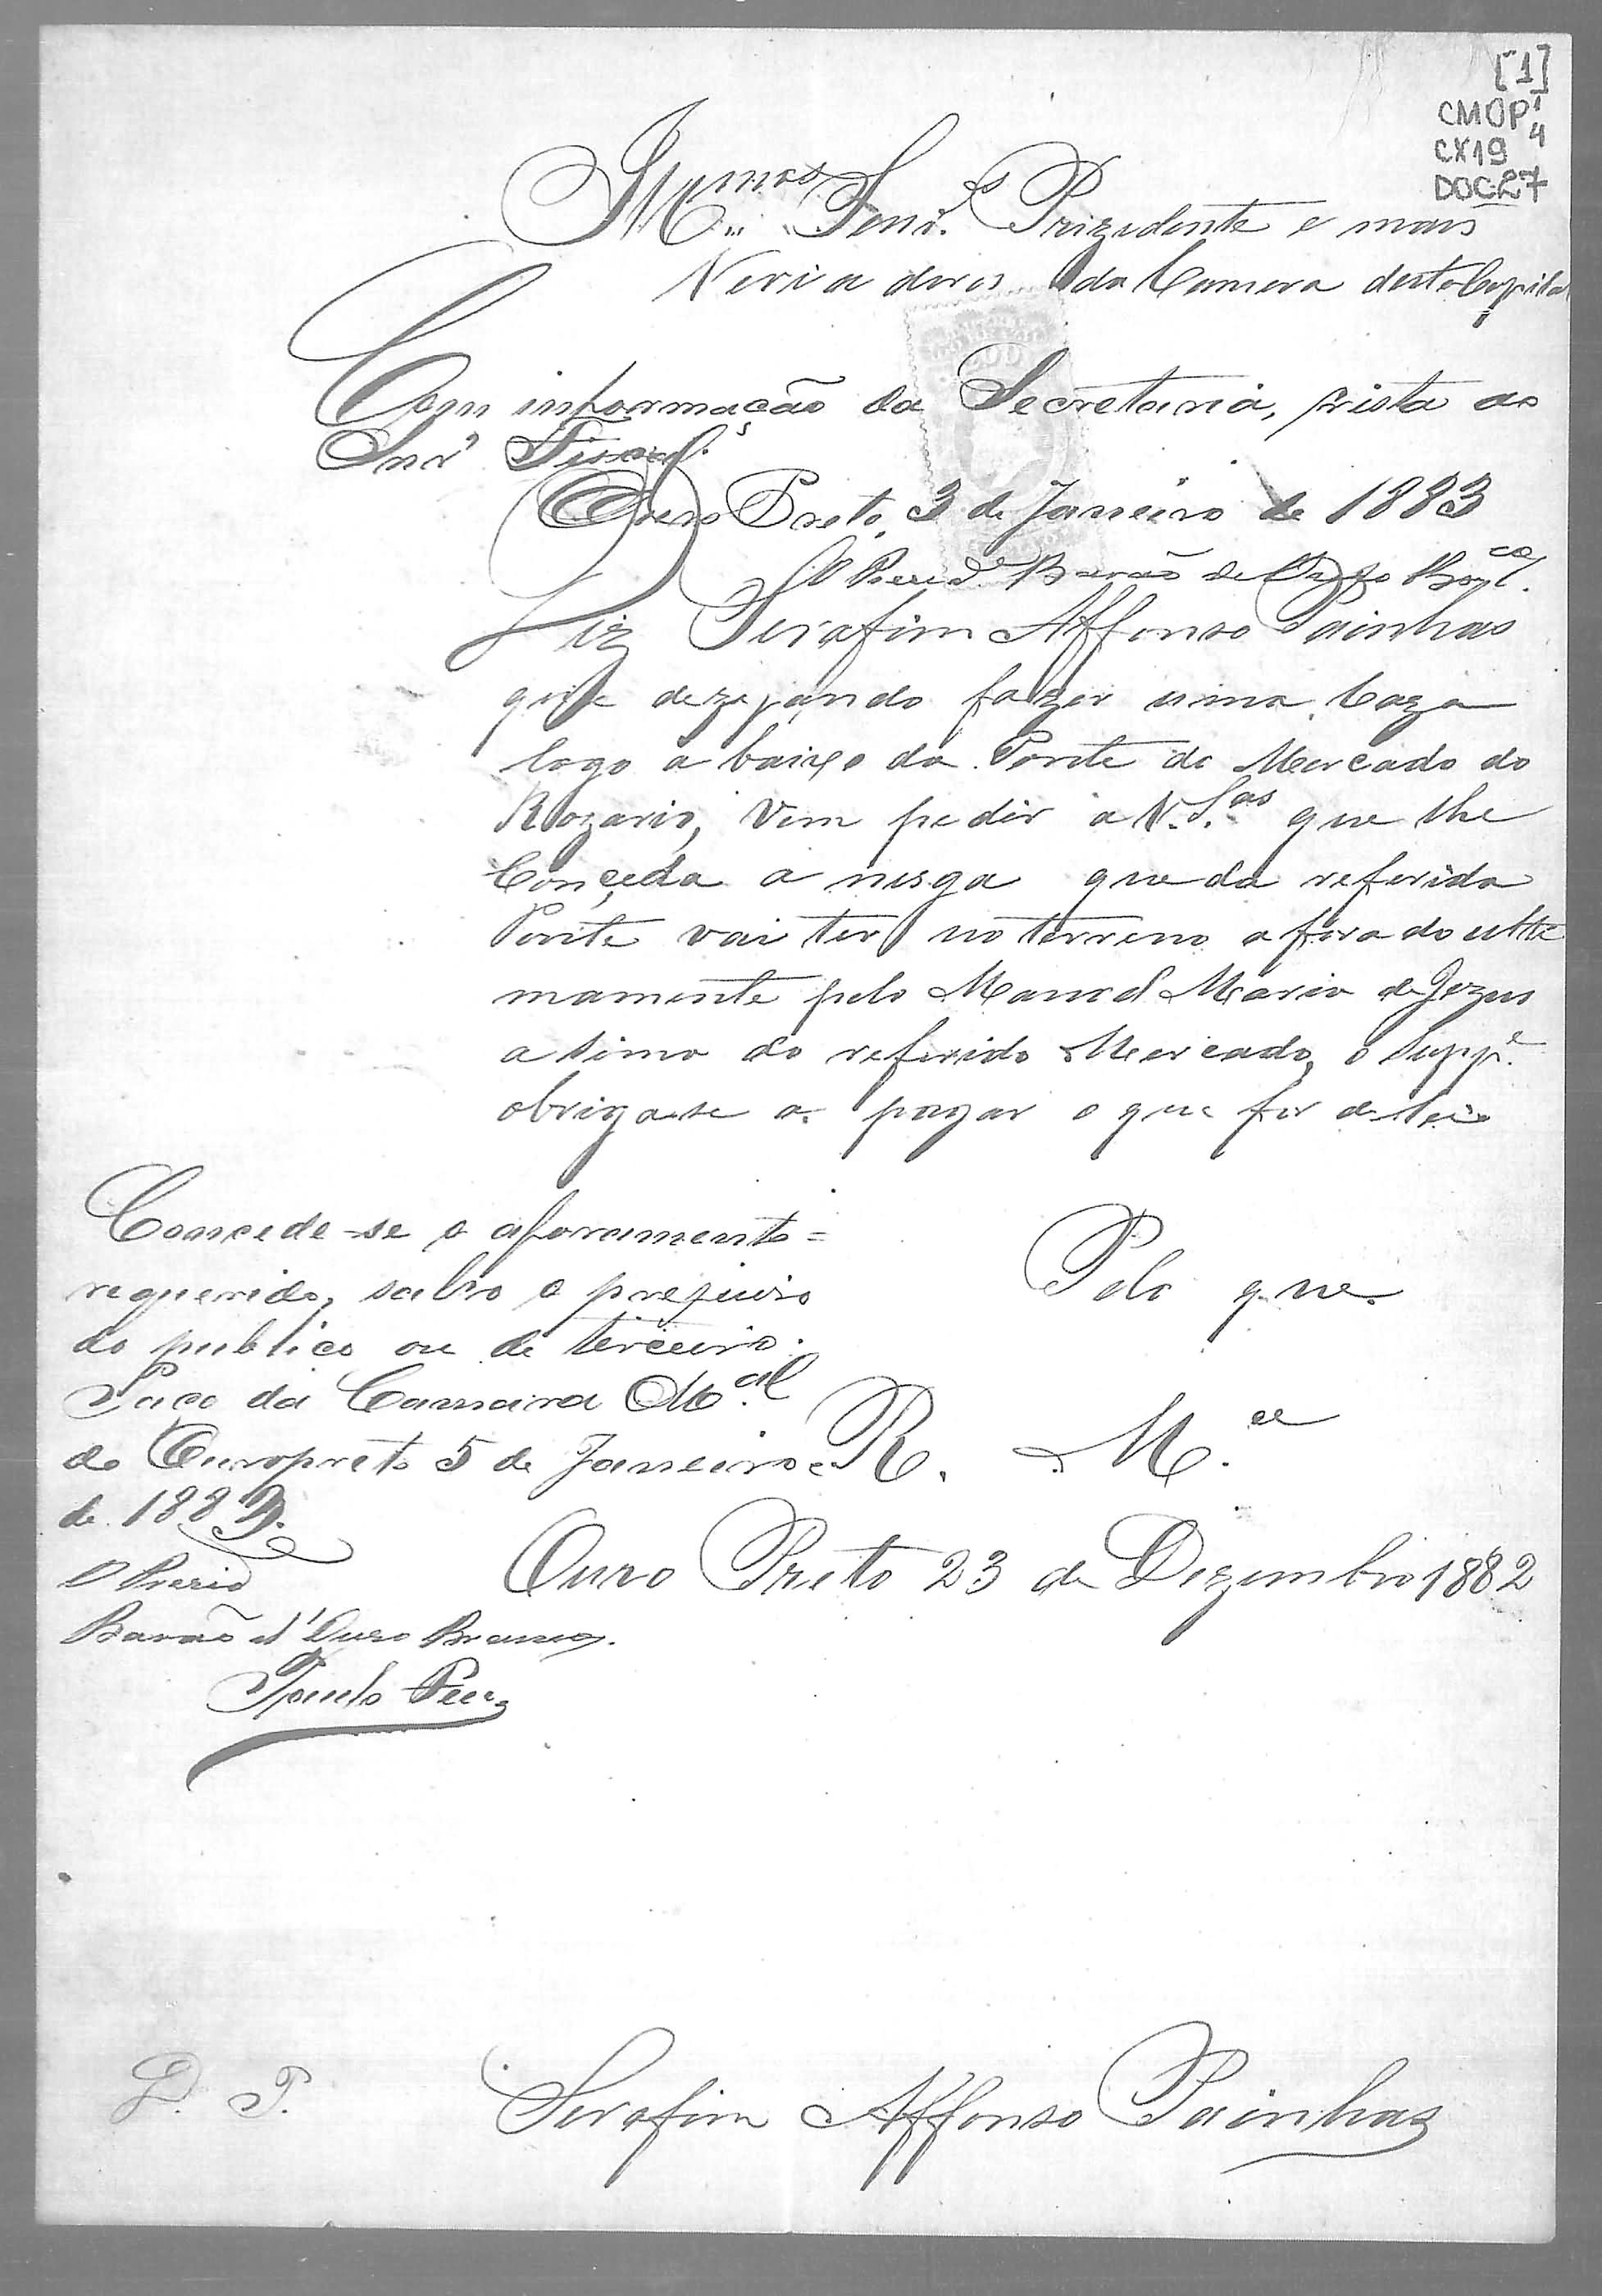 [1]
CMOP 1
CX19 4
DOC27
Ill.mos Senr.es Prizidente e mais
Veriadores da Camera desta Capital
Com informação da Secretaria, vista ao
Snr' Fiscal.
Ouro Preto, 3 de Janeiro de 1883
O Presid.e Barão de Ouro Br.co
Diz Serafim Affonso Painhas
que dezejando fazer uma Caza
logo abaixo da Ponte do Mercado do
Rozario, Vem pedir a V. S.as que lhe
Conçeda a nesga que da referida
Ponte vai ter no terreno aforado ulti
mamente pelo Manoel Maria de Jezus
asima do referido Mercado, o Supp.e
obriga-se a pagar o que for de lei
Pelo que
R. M.ce
Ouro Preto 23 de Dezembro 1882
Serafim Affonso Painhas
Concede-se o aforamento =
requerido, salvo o prejuizo
do publico ou de terceiro.
Paço da Camara M.al
do Ouropreto 5 de Janeiro
de 1883.
O Presid
Barão d'Ouro Branco.
Paulo
D. P.